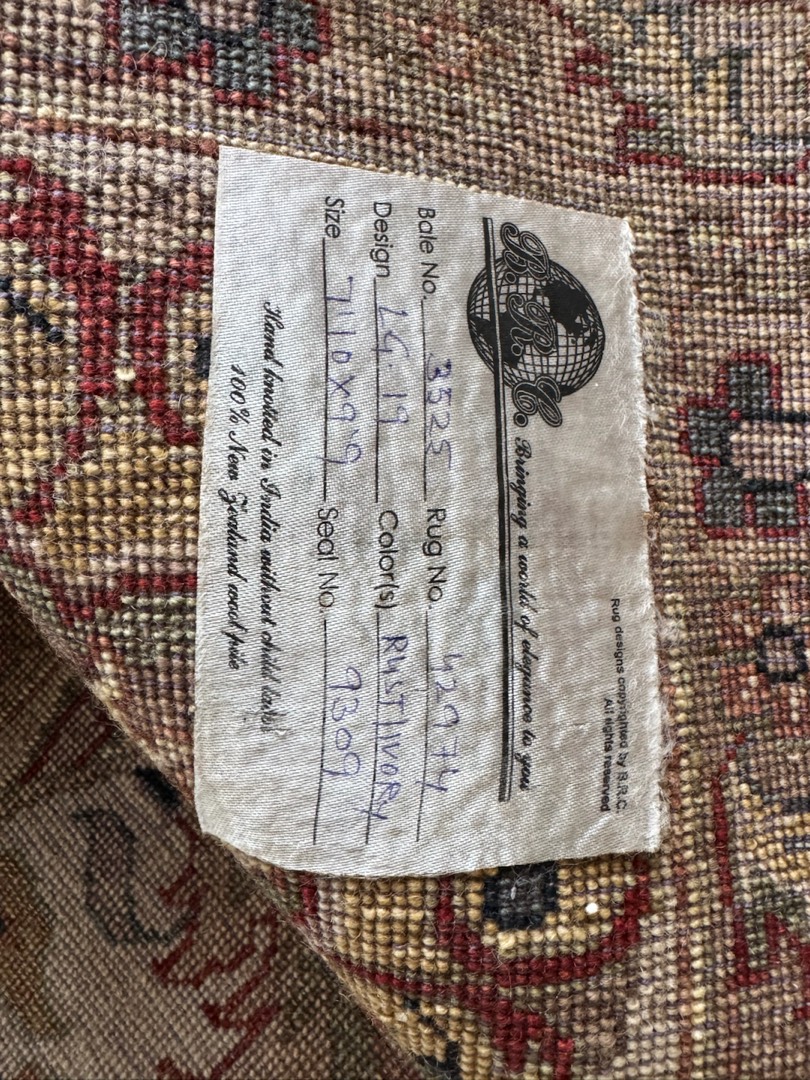 Rug designs copyrighted by B.R.C.
All rights reserved
B.R.C. Bringing a world of elegance to you
Bale No. 3525 Rug No. 42974
Design LG.19 Color(s) RUST/IVORY
Size 7'10X9'9 Seal No. 9309
Hand knotted in India without child labor
100% New Zealand wool pile